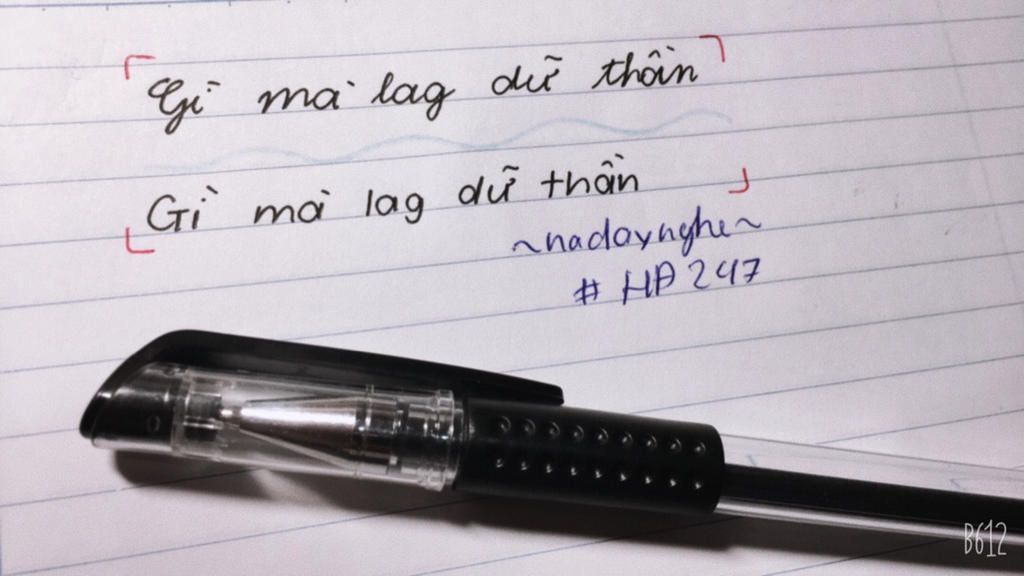 Gì mà lag dữ thần
Gì mà lag dữ thần
~nadaynghe~
# HA247
B612